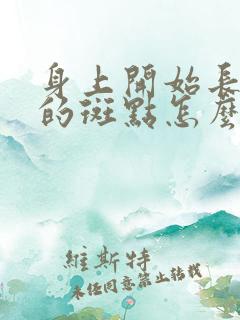 身上開始長
的斑點怎麼
維斯特
未經同意禁止轉載